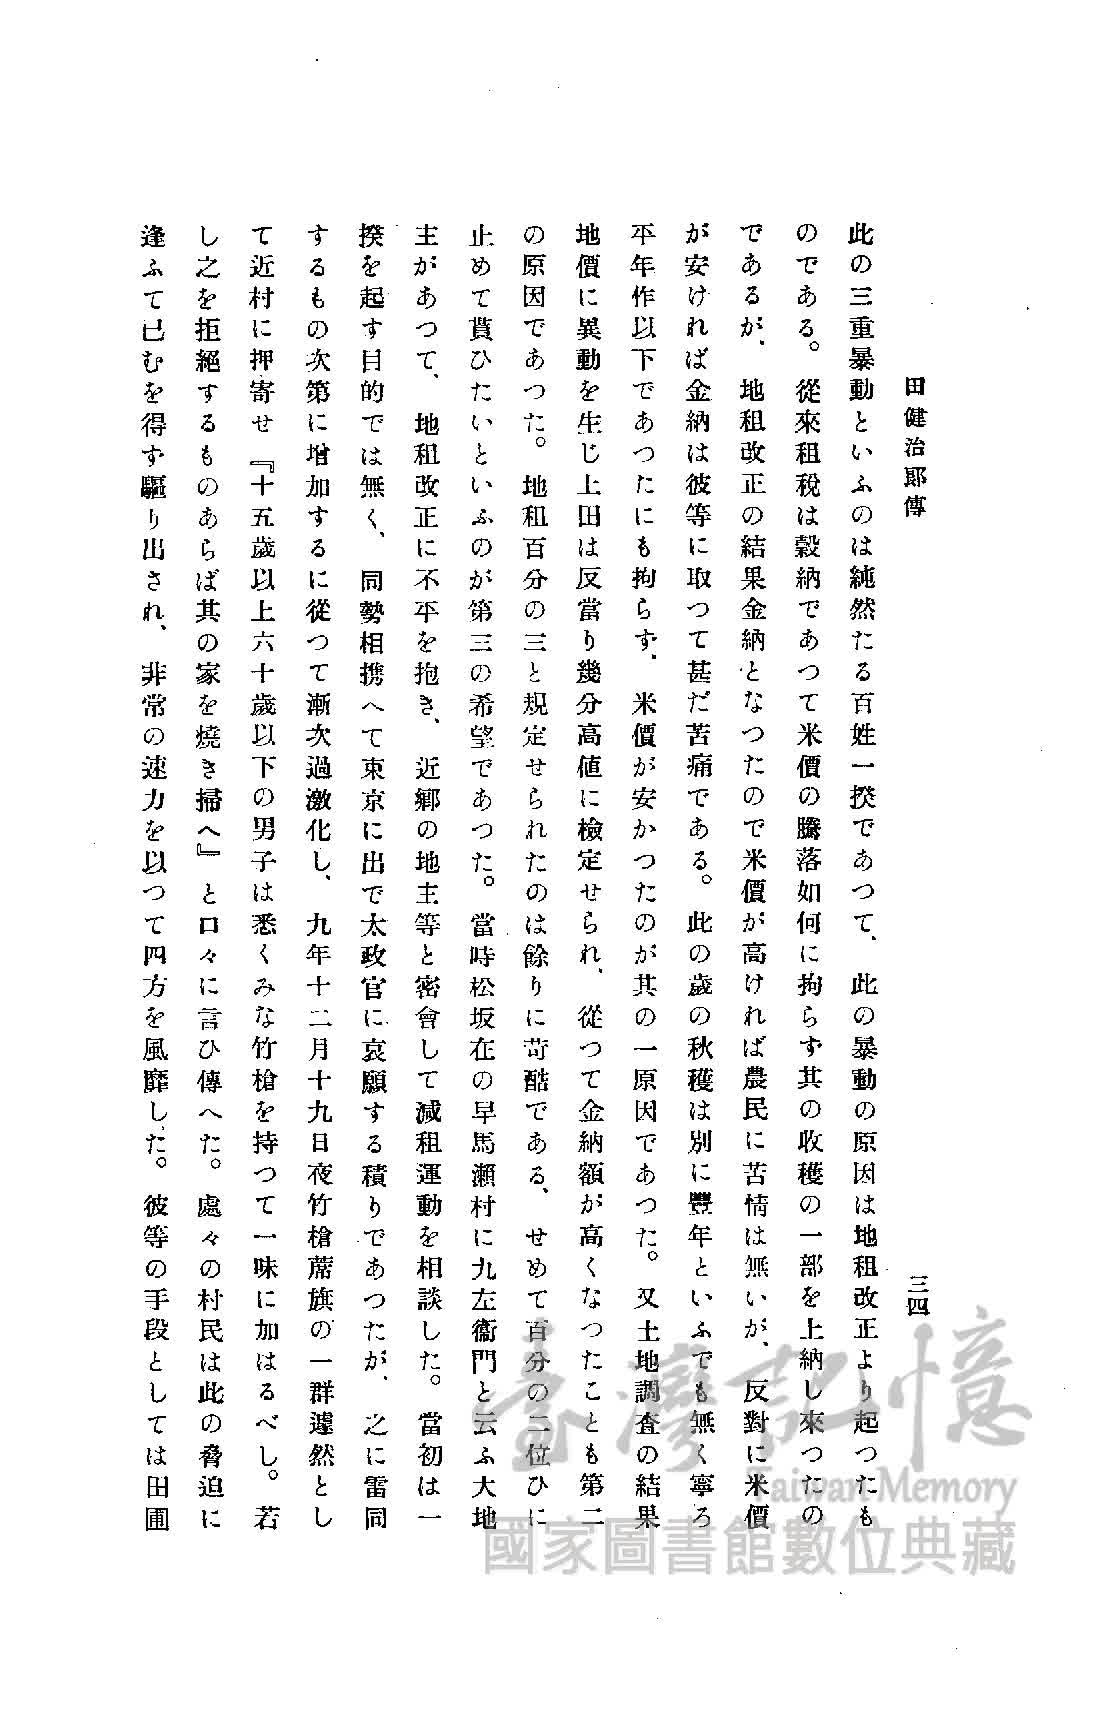 田健治郎傳
三四
此の三重暴動といふのは純然たる百姓一揆であつて、此の暴動の原因は地租改正より起つたも
のである。從來租稅は穀納であつて米價の騰落如何に拘らず其の收穫の一部を上納し來つたの
であるが、地租改正の結果金納となつたので米價が高ければ農民に苦情は無いが、反對に米價
が安ければ金納は彼等に取つて甚だ苦痛である。此の歲の秋穫は別に豐年といふでも無く寧ろ
平年作以下であつたにも拘らず、米價が安かつたのが其の一原因であつた。又土地調査の結果
地價に異動を生じ上田は反當り幾分高値に檢定せられ、從つて金納額が高くなつたことも第二
の原因であつた。地租百分の三と規定せられたのは餘りに苛酷である、せめて百分の二位ひに
止めて貰ひたいといふのが第三の希望であつた。當時松坂在の早馬瀨村に九左衞門と云ふ大地
主があつて、地租改正に不平を抱き、近鄉の地主等と密會して減租運動を相談した。當初は一
揆を起す目的では無く、同勢相携へて東京に出で太政官に哀願する積りであつたが、之に雷同
するもの次第に增加するに從つて漸次過激化し、九年十二月十九日夜竹槍蓆旗の一群遽然とし
て近村に押寄せ『十五歲以上六十歲以下の男子は悉くみな竹槍を持つて一味に加はるべし。若
し之を拒絕するものあらば其の家を燒き掃へ』と口々に言ひ傳へた。處々の村民は此の脅迫に
逢ふて已むを得ず驅り出され、非常の速力を以つて四方を風靡した。彼等の手段としては田圃
臺灣記憶
Taiwan Memory
國家圖書館數位典藏